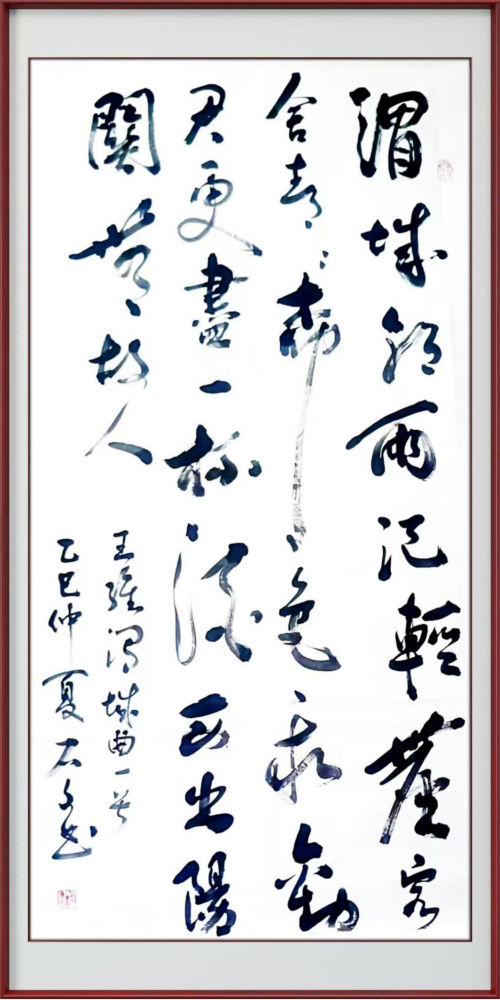 渭城朝雨浥輕塵客
舍青〻柳色新勸
君更盡一杯酒西出陽
關無故人
王維渭城曲一首
乙巳仲夏石书